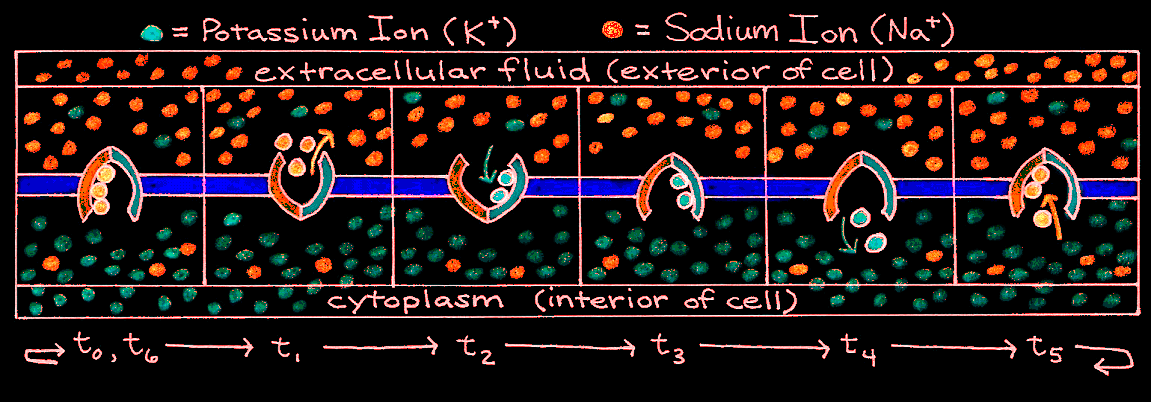 = Potassium Ion (K⁺) = Sodium Ion (Na⁺)
extracellular fluid (exterior of cell)
cytoplasm (interior of cell)
t₀, t₆ → t₁ → t₂ → t₃ → t₄ → t₅